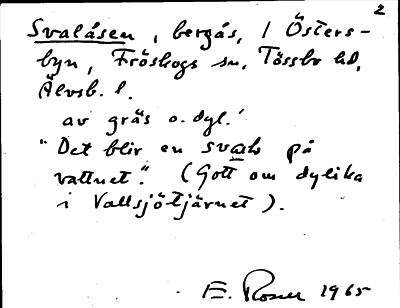 2
Svalåsen, bergås, / Östers-
byn, Fröskogs sn, Tössbo hd,
Älvsb. l.
av gräs o. dyl.'
"Det blir en svale på
vattnet." (Gott om dylika
i Vallsjötjärnet).
E. Rosen 1965